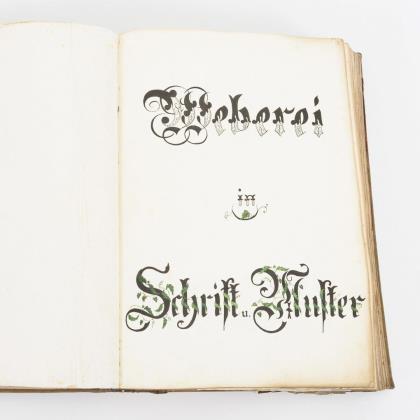 Weberei
in
Schrift u. Muster